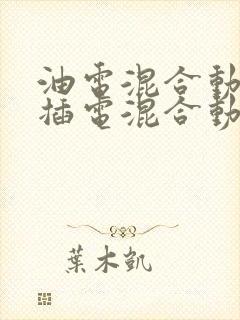 油電混合動
插電混合動
葉木凱